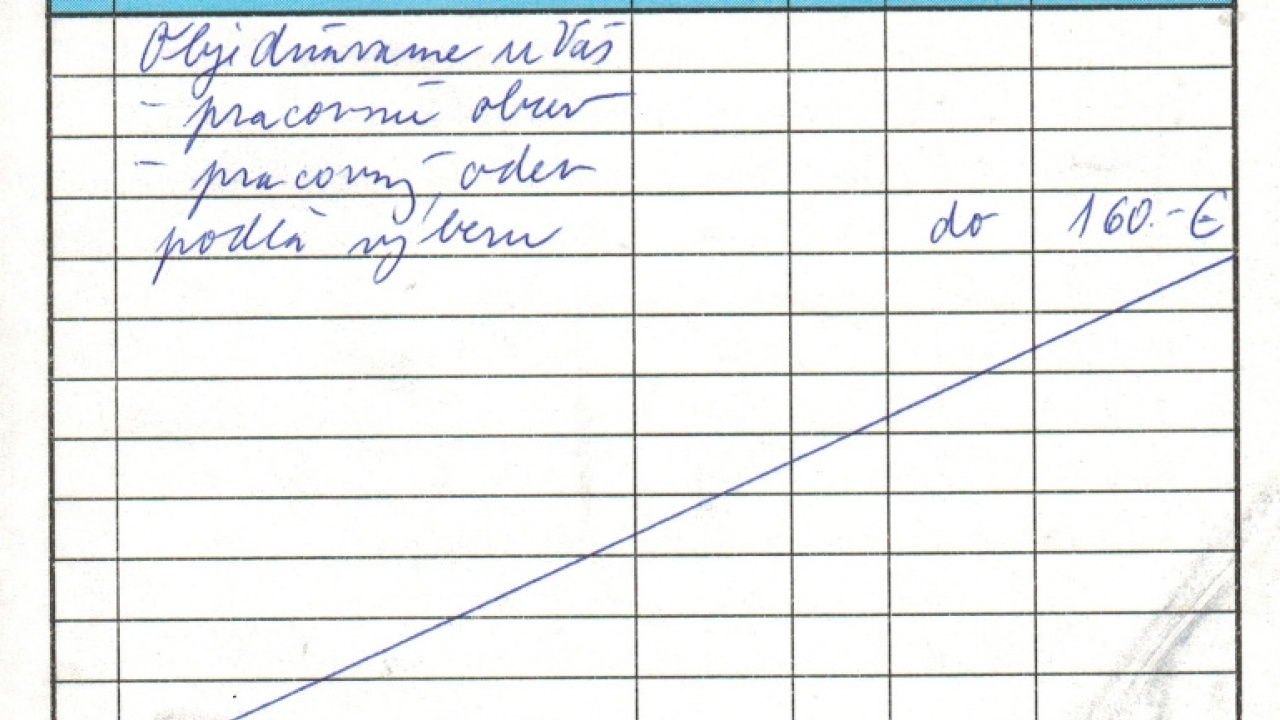 Objednávame u Vás
- pracovnú obuv
- pracovný odev
podľa výberu do 160.-€